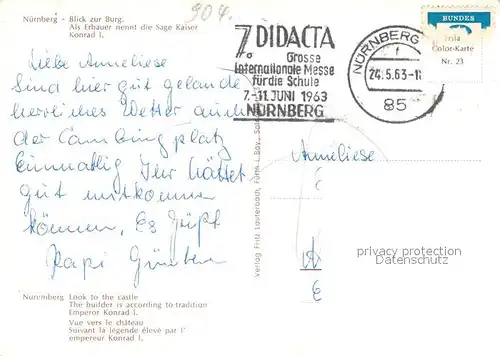 904.
Nürnberg - Blick zur Burg.
Als Erbauer nennt die Sage Kaiser
Konrad I.
7. DIDACTA
Grosse
Internationale Messe
für die Schule
7.-11. JUNI 1963
NÜRNBERG
NÜRNBERG
f
24.5.63-1
85
BUNDES
Color-Karte
Nr. 23
Liebe Anneliese
Sind hier gut gelandet
herrliches Wetter auch
der Campingplatz
Einmalig Ihr hättet
gut mitkommen
können. Es grüßt
Papi Günter
Anneliese
A
Verlag Fritz Lauterbach, Fürth i. Bay.,
privacy protection
Datenschutz
Nuremberg Look to the castle
The builder is according to tradition
Emperor Konrad I.
Vue vers le château
Suivant la légende élevé par l'
empereur Konrad I.